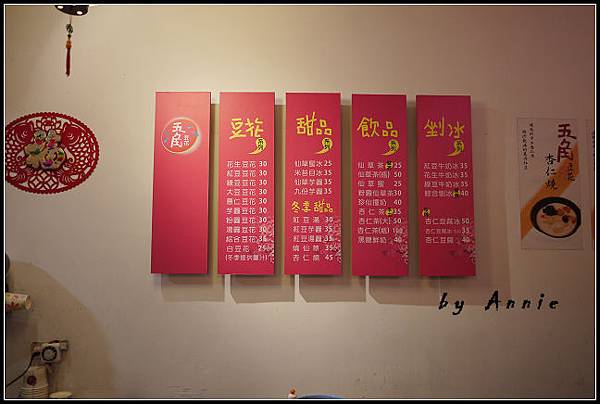 五角
豆花
豆花
花生豆花 30
紅豆豆花 30
綠豆豆花 30
大豆豆花 30
薏仁豆花 30
芋圓豆花 30
粉圓豆花 30
湯圓豆花 35
綜合豆花 35
白豆花 25
甜品
仙草蜜冰 25
米苔目冰 35
仙草芋圓 35
九份芋圓 35
冬季甜品
紅豆湯 30
紅豆芋圓 35
紅豆湯圓 35
燒仙草 35
杏仁燒 45
飲品
仙草茶 25
仙草茶(瓶) 50
仙草蜜 25
粉圓仙草茶 30
珍仙撞奶 40
杏仁茶 35
杏仁茶(大) 50
杏仁茶(瓶) 100
黑糖鮮奶 40
剉冰
紅豆牛奶冰 35
花生牛奶冰 35
綠豆牛奶冰 35
綜合剉冰 40
杏仁豆腐冰 50
杏仁豆腐冰 50 35
杏仁豆腐 40
五角
豆花
杏仁燒
by Annie